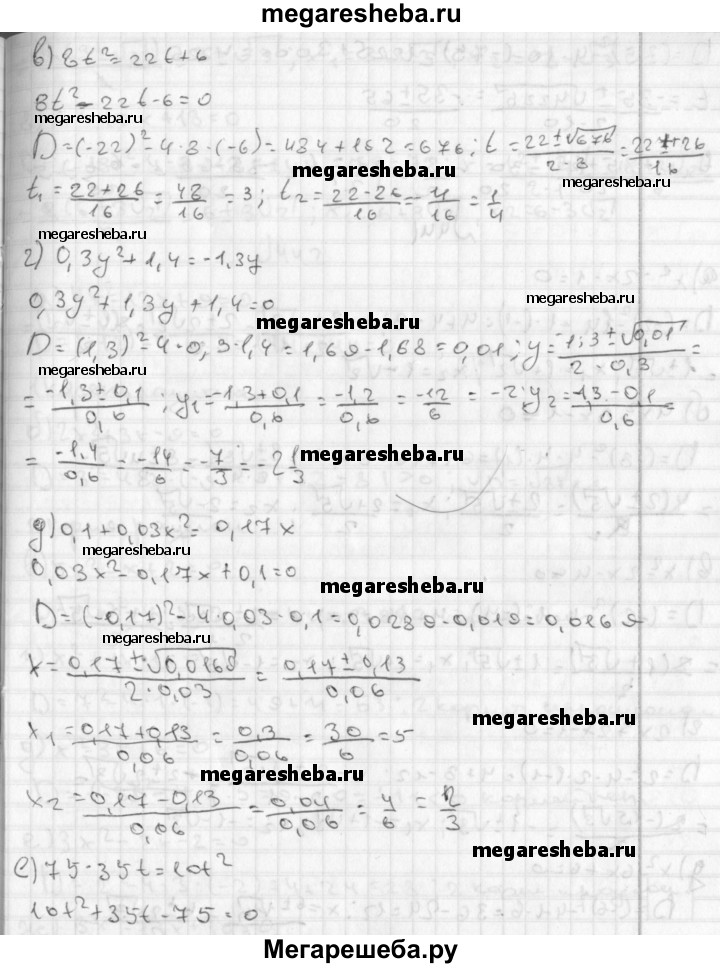 megaresheba.ru
в) 8t² = 22t + 6
8t² - 22t - 6 = 0
megaresheba.ru
D = (-22)² - 4·8·(-6) = 484 + 192 = 676; t = (22 ± √676)/(2·8) = (22 ± 26)/16
megaresheba.ru
megaresheba.ru
t₁ = (22+26)/16 = 48/16 = 3; t₂ = (22-26)/16 = -4/16 = 1/4
megaresheba.ru
г) 0,3y² + 1,4 = -1,3y
0,3y² + 1,3y + 1,4 = 0
megaresheba.ru
megaresheba.ru
D = (1,3)² - 4·0,3·1,4 = 1,69 - 1,68 = 0,01; y = (-1,3 ± √0,01)/(2·0,3) =
megaresheba.ru
= (-1,3 ± 0,1)/0,6; y₁ = (-1,3+0,1)/0,6 = -1,2/0,6 = -12/6 = -2; y₂ = (-1,3-0,1)/0,6 =
= -1,4/0,6 = -14/6 = -7/3 = -2 1/3
megaresheba.ru
д) 0,1 + 0,03x² = 0,17x
megaresheba.ru
0,03x² - 0,17x + 0,1 = 0
megaresheba.ru
D = (-0,17)² - 4·0,03·0,1 = 0,0289 - 0,012 = 0,0169
megaresheba.ru
x = (0,17 ± √0,0169)/(2·0,03) = (0,17 ± 0,13)/0,06
megaresheba.ru
x₁ = (0,17+0,13)/0,06 = 0,3/0,06 = 30/6 = 5
megaresheba.ru
x₂ = (0,17-0,13)/0,06 = 0,04/0,06 = 4/6 = 2/3
megaresheba.ru
е) 75 - 35t = 10t²
10t² + 35t - 75 = 0
Мегарешеба.ру